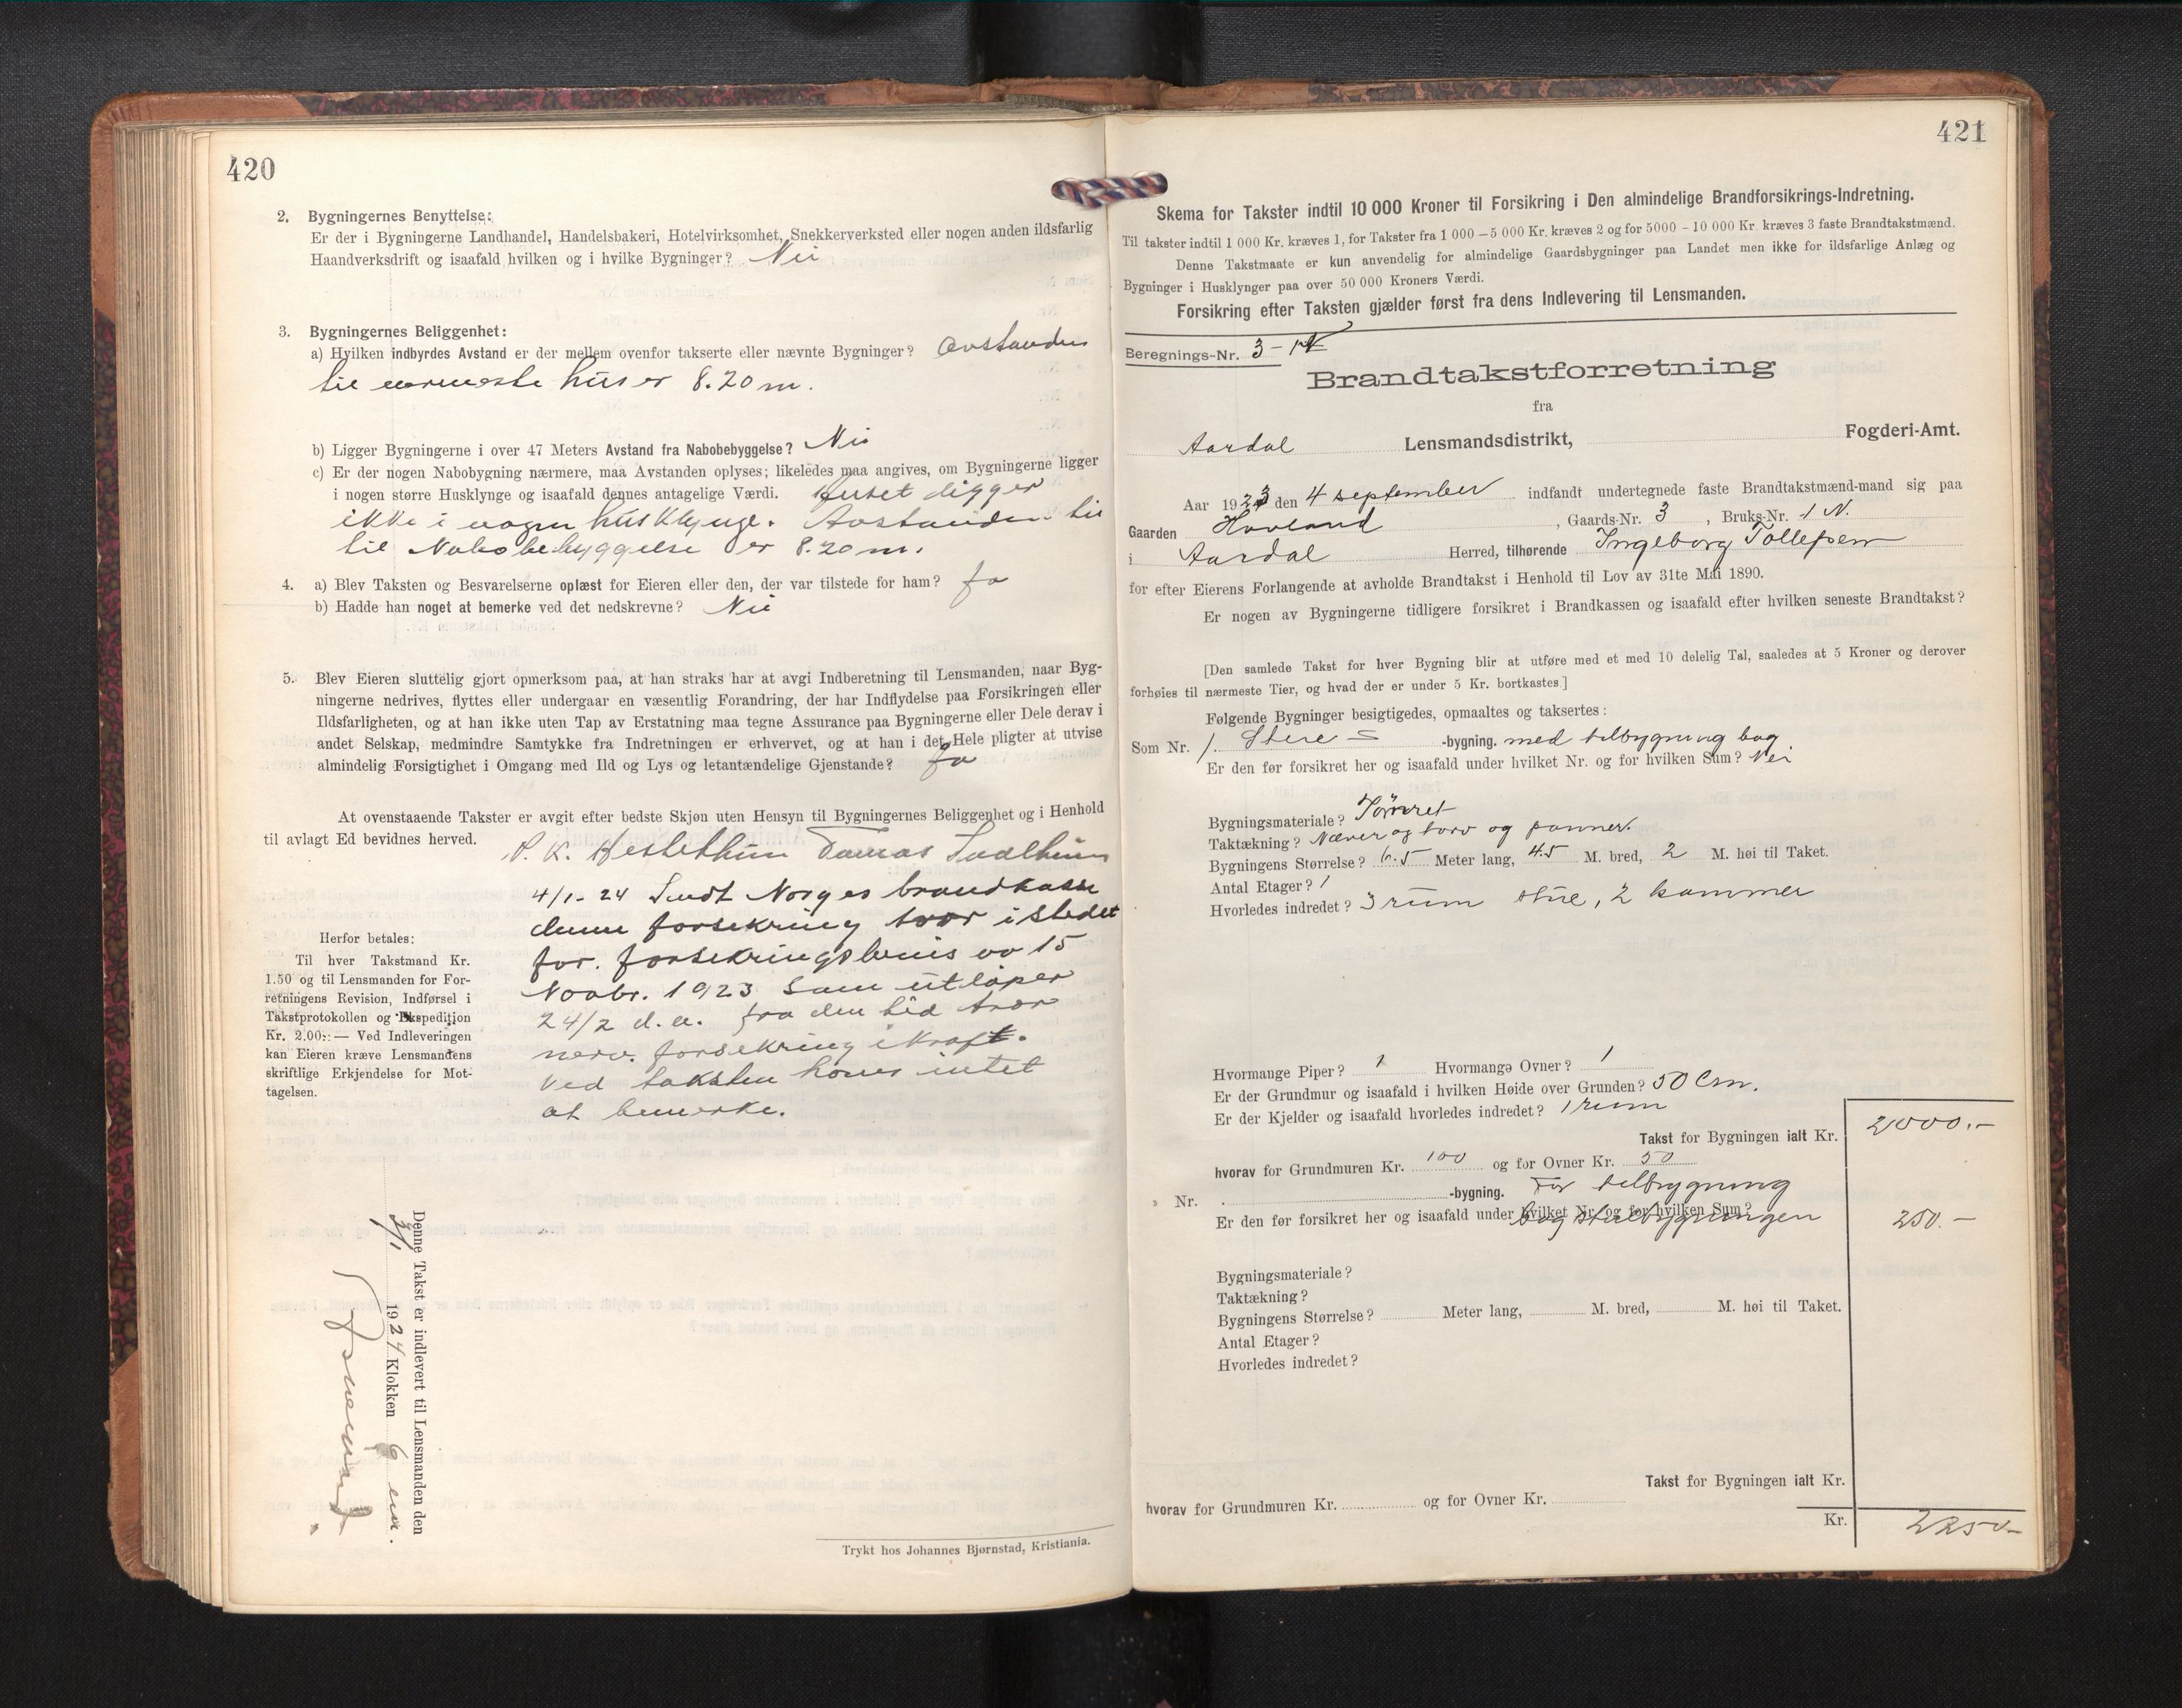 420
2. Bygningernes Benyttelse:
Er der i Bygningerne Landhandel, Handelsbakeri, Hotelvirksomhet, Snekkerverksted eller nogen anden ildsfarlig
Haandverksdrift og isaafald hvilken og i hvilke Bygninger? Nei
3. Bygningernes Beliggenhet:
a) Hvilken indbyrdes Avstand er der mellem ovenfor takserte eller nævnte Bygninger? Avstanden
til nærmeste hus er 8.20 m.
b) Ligger Bygningerne i over 47 Meters Avstand fra Nabobebyggelse? Nei
c) Er der nogen Nabobygning nærmere, maa Avstanden oplyses; likeledes maa angives, om Bygningerne ligger
i nogen større Husklynge og isaafald dennes antagelige Værdi. Huset ligger
ikke i nogen husklynge. Avstanden til
til Nabobebyggelse er 8.20 m.
4. a) Blev Taksten og Besvarelserne oplæst for Eieren eller den, der var tilstede for ham? Ja
b) Hadde han noget at bemerke ved det nedskrevne? Nei
5. Blev Eieren sluttelig gjort opmerksom paa, at han straks har at avgi Indberetning til Lensmanden, naar Byg-
ningerne nedrives, flyttes eller undergaar en væsentlig Forandring, der har Indflydelse paa Forsikringen eller
Ildsfarligheten, og at han ikke uten Tap av Erstatning maa tegne Assurance paa Bygningerne eller Dele derav i
andet Selskap, medmindre Samtykke fra Indretningen er erhvervet, og at han i det Hele pligter at utvise
almindelig Forsigtighet i Omgang med Ild og Lys og letantændelige Gjenstande? Ja
At ovenstaaende Takster er avgit efter bedste Skjøn uten Hensyn til Bygningernes Beliggenhet og i Henhold
til avlagt Ed bevidnes herved.
P. K. Hestethun Tomas
4/1- 24 Sendt Norges brandkasse
denne forsekring trær istedet
for. forsekringsbevis av 15
Novbr. 1923 som utløper
24/2 d. a. fra den tid trær
nerv. forsekring ikraft.
Ved taksten haves intet
at bemerke.
Herfor betales:
Til hver Takstmand Kr.
1.50 og til Lensmanden for For-
retningens Revision, Indførsel i
Takstprotokollen og Ekspedition
Kr. 2.00: — Ved Indleveringen
kan Eieren kræve Lensmandens
skriftlige Erkjendelse for Mot-
tagelsen.
Denne Takst er indlevert til Lensmanden den
1924 Klokken 6 em.
Trykt hos Johannes Bjørnstad, Kristiania.
421
Skema for Takster indtil 10 000 Kroner til Forsikring i Den almindelige Brandforsikrings-Indretning.
Til takster indtil 1 000 Kr. kræves 1, for Takster fra 1 000 — 5 000 Kr. kræves 2 og for 5000 - 10 000 Kr. kræves 3 faste Brandtakstmænd.
Denne Takstmaate er kun anvendelig for almindelige Gaardsbygninger paa Landet men ikke for ildsfarlige Anlæg og
Bygninger i Husklynger paa over 50 000 Kroners Værdi.
Forsikring efter Taksten gjælder først fra dens Indlevering til Lensmanden.
Beregnings-Nr. 3-1N
Brandtakstforretning
fra
Aardal Lensmandsdistrikt, Fogderi-Amt.
Aar 1923 den 4 september indfandt undertegnede faste Brandtakstmænd-mand sig paa
Gaarden Hovland, Gaards-Nr. 3, Bruks-Nr. 1 N.
i Aardal Herred, tilhørende Ingeborg Tollefsen
for efter Eierens Forlangende at avholde Brandtakst i Henhold til Lov av 31te Mai 1890.
Er nogen av Bygningerne tidligere forsikret i Brandkassen og isaafald efter hvilken seneste Brandtakst?
[Den samlede Takst for hver Bygning blir at utføre med et med 10 delelig Tal, saaledes at 5 Kroner og derover
forhøies til nærmeste Tier, og hvad der er under 5 Kr. bortkastes.]
Følgende Bygninger besigtigedes, opmaaltes og taksertes:
Som Nr. 1. Stue = -bygning. med tilbygning bag
Er den før forsikret her og isaafald under hvilket Nr. og for hvilken Sum? Nei
Bygningsmateriale? Tømret
Taktækning? Næver og torv og panner.
Bygningens Størrelse? 6.5 Meter lang, 4.5 M. bred, 2 M. høi til Taket.
Antal Etager? 1
Hvorledes indredet? 3 rum stue, 2 kammer
Hvormange Piper? 1 Hvormange Ovner? 1
Er der Grundmur og isaafald i hvilken Høide over Grunden? 50 Cm.
Er der Kjelder og isaafald hvorledes indredet? 1 rum
Takst for Bygningen ialt Kr. 2000.-
hvorav for Grundmuren Kr. 100 og for Ovner Kr. 50
» Nr. -bygning. For tilbygning
Er den før forsikret her og isaafald under hvilket Nr. og for hvilken Sum? bag stuebygningen 250.-
Bygningsmateriale?
Taktækning?
Bygningens Størrelse? Meter lang, M. bred, M. høi til Taket.
Antal Etager?
Hvorledes indredet?
Takst for Bygningen ialt Kr.
hvorav for Grundmuren Kr. og for Ovner Kr.
Kr. 2250-